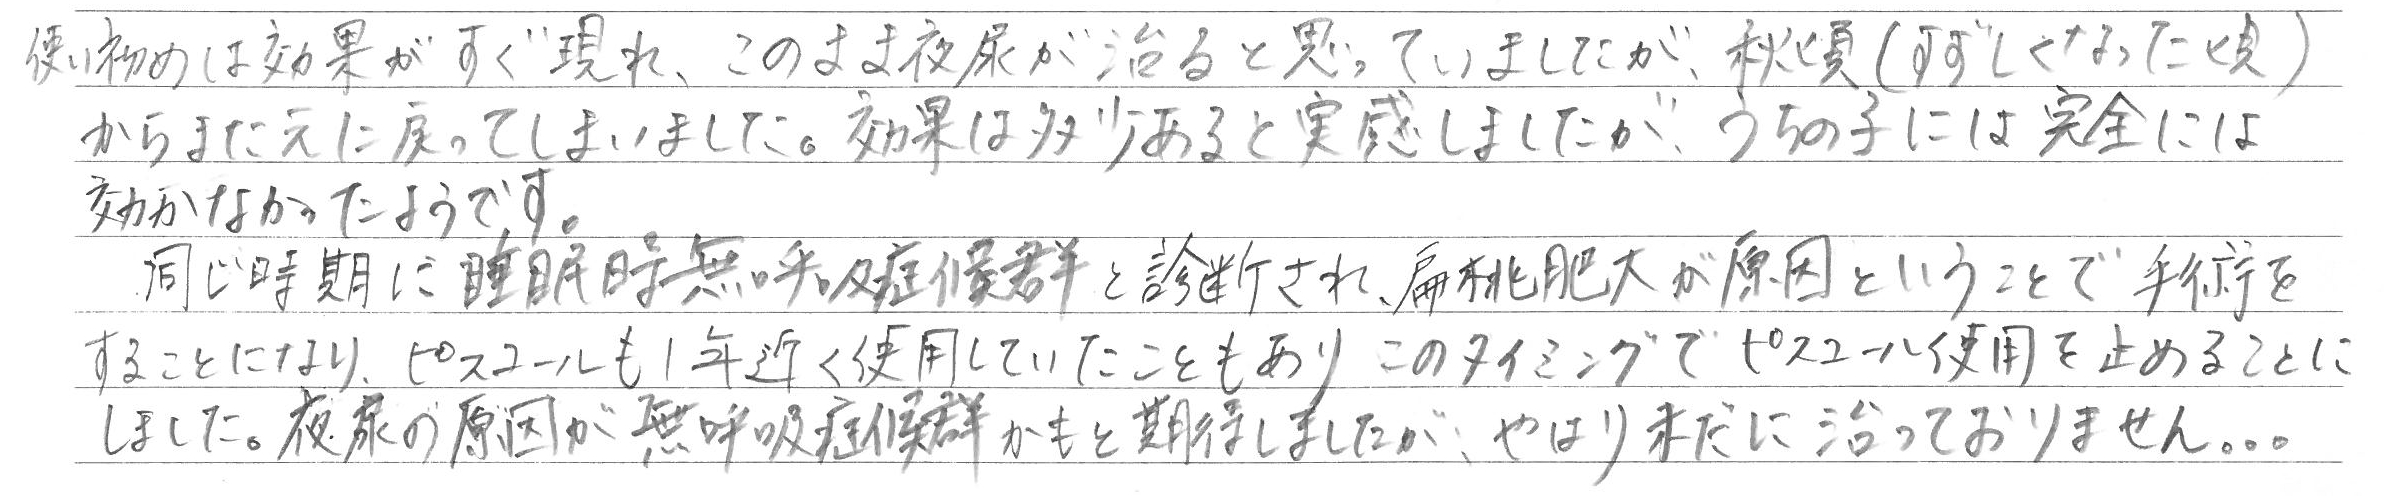 使い初めは効果がすぐ現れ、このまま夜尿が治ると思っていましたが、秋頃(すずしくなった頃)
からまた元に戻ってしまいました。効果は多少あると実感しましたが、うちの子には完全には
効かなかったようです。
同じ時期に睡眠時無呼吸症候群と診断され、扁桃肥大が原因ということで手術を
することになり、ピスコールも1年近く使用していたこともあり このタイミングでピスコール使用を止めることに
しました。夜尿の原因が無呼吸症候群かもと期待しましたが、やはり未だに治っておりません。。。